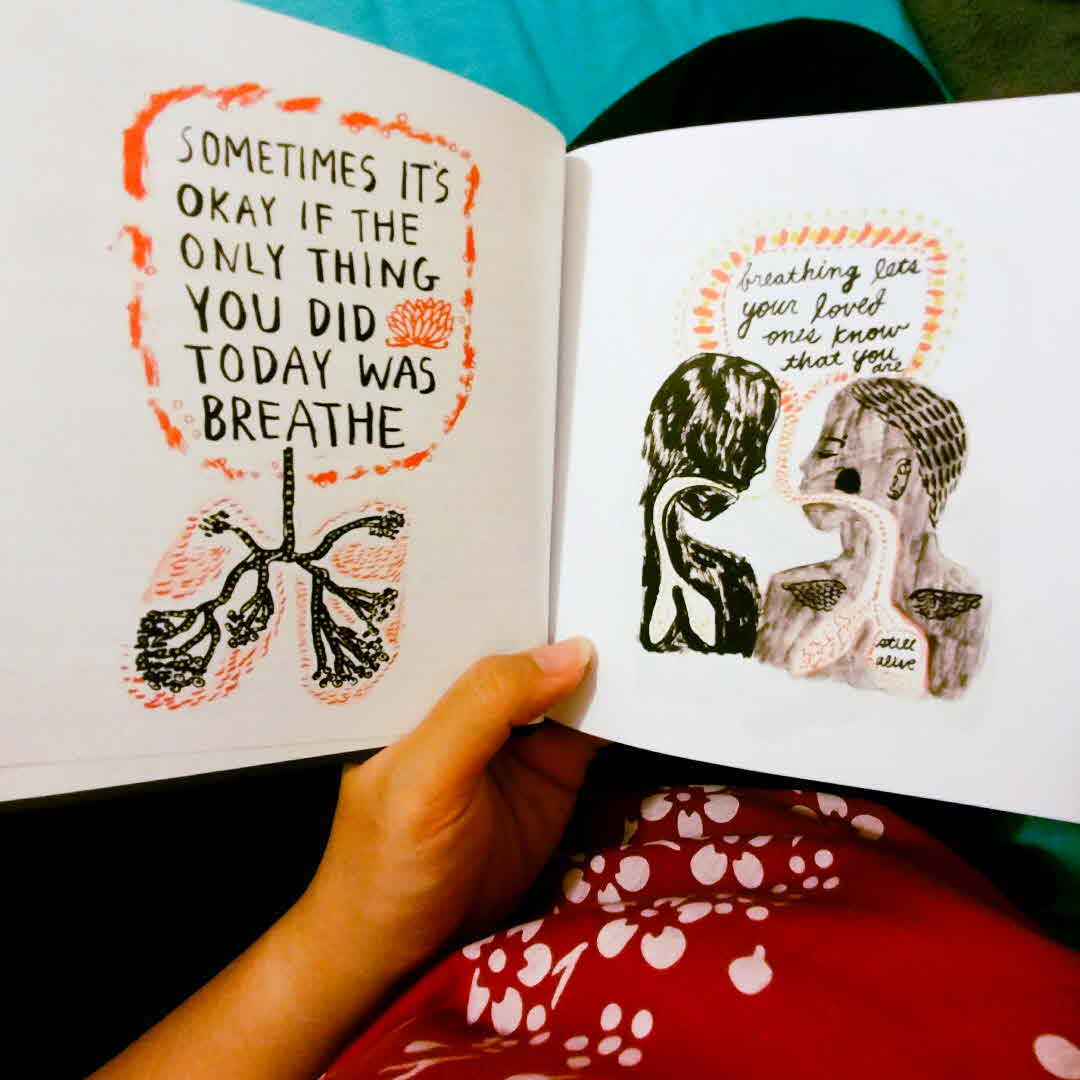 SOMETIMES IT'S
OKAY IF THE
ONLY THING
YOU DID
TODAY WAS
BREATHE
breathing lets
your loved
ones know
that you
are
still
alive